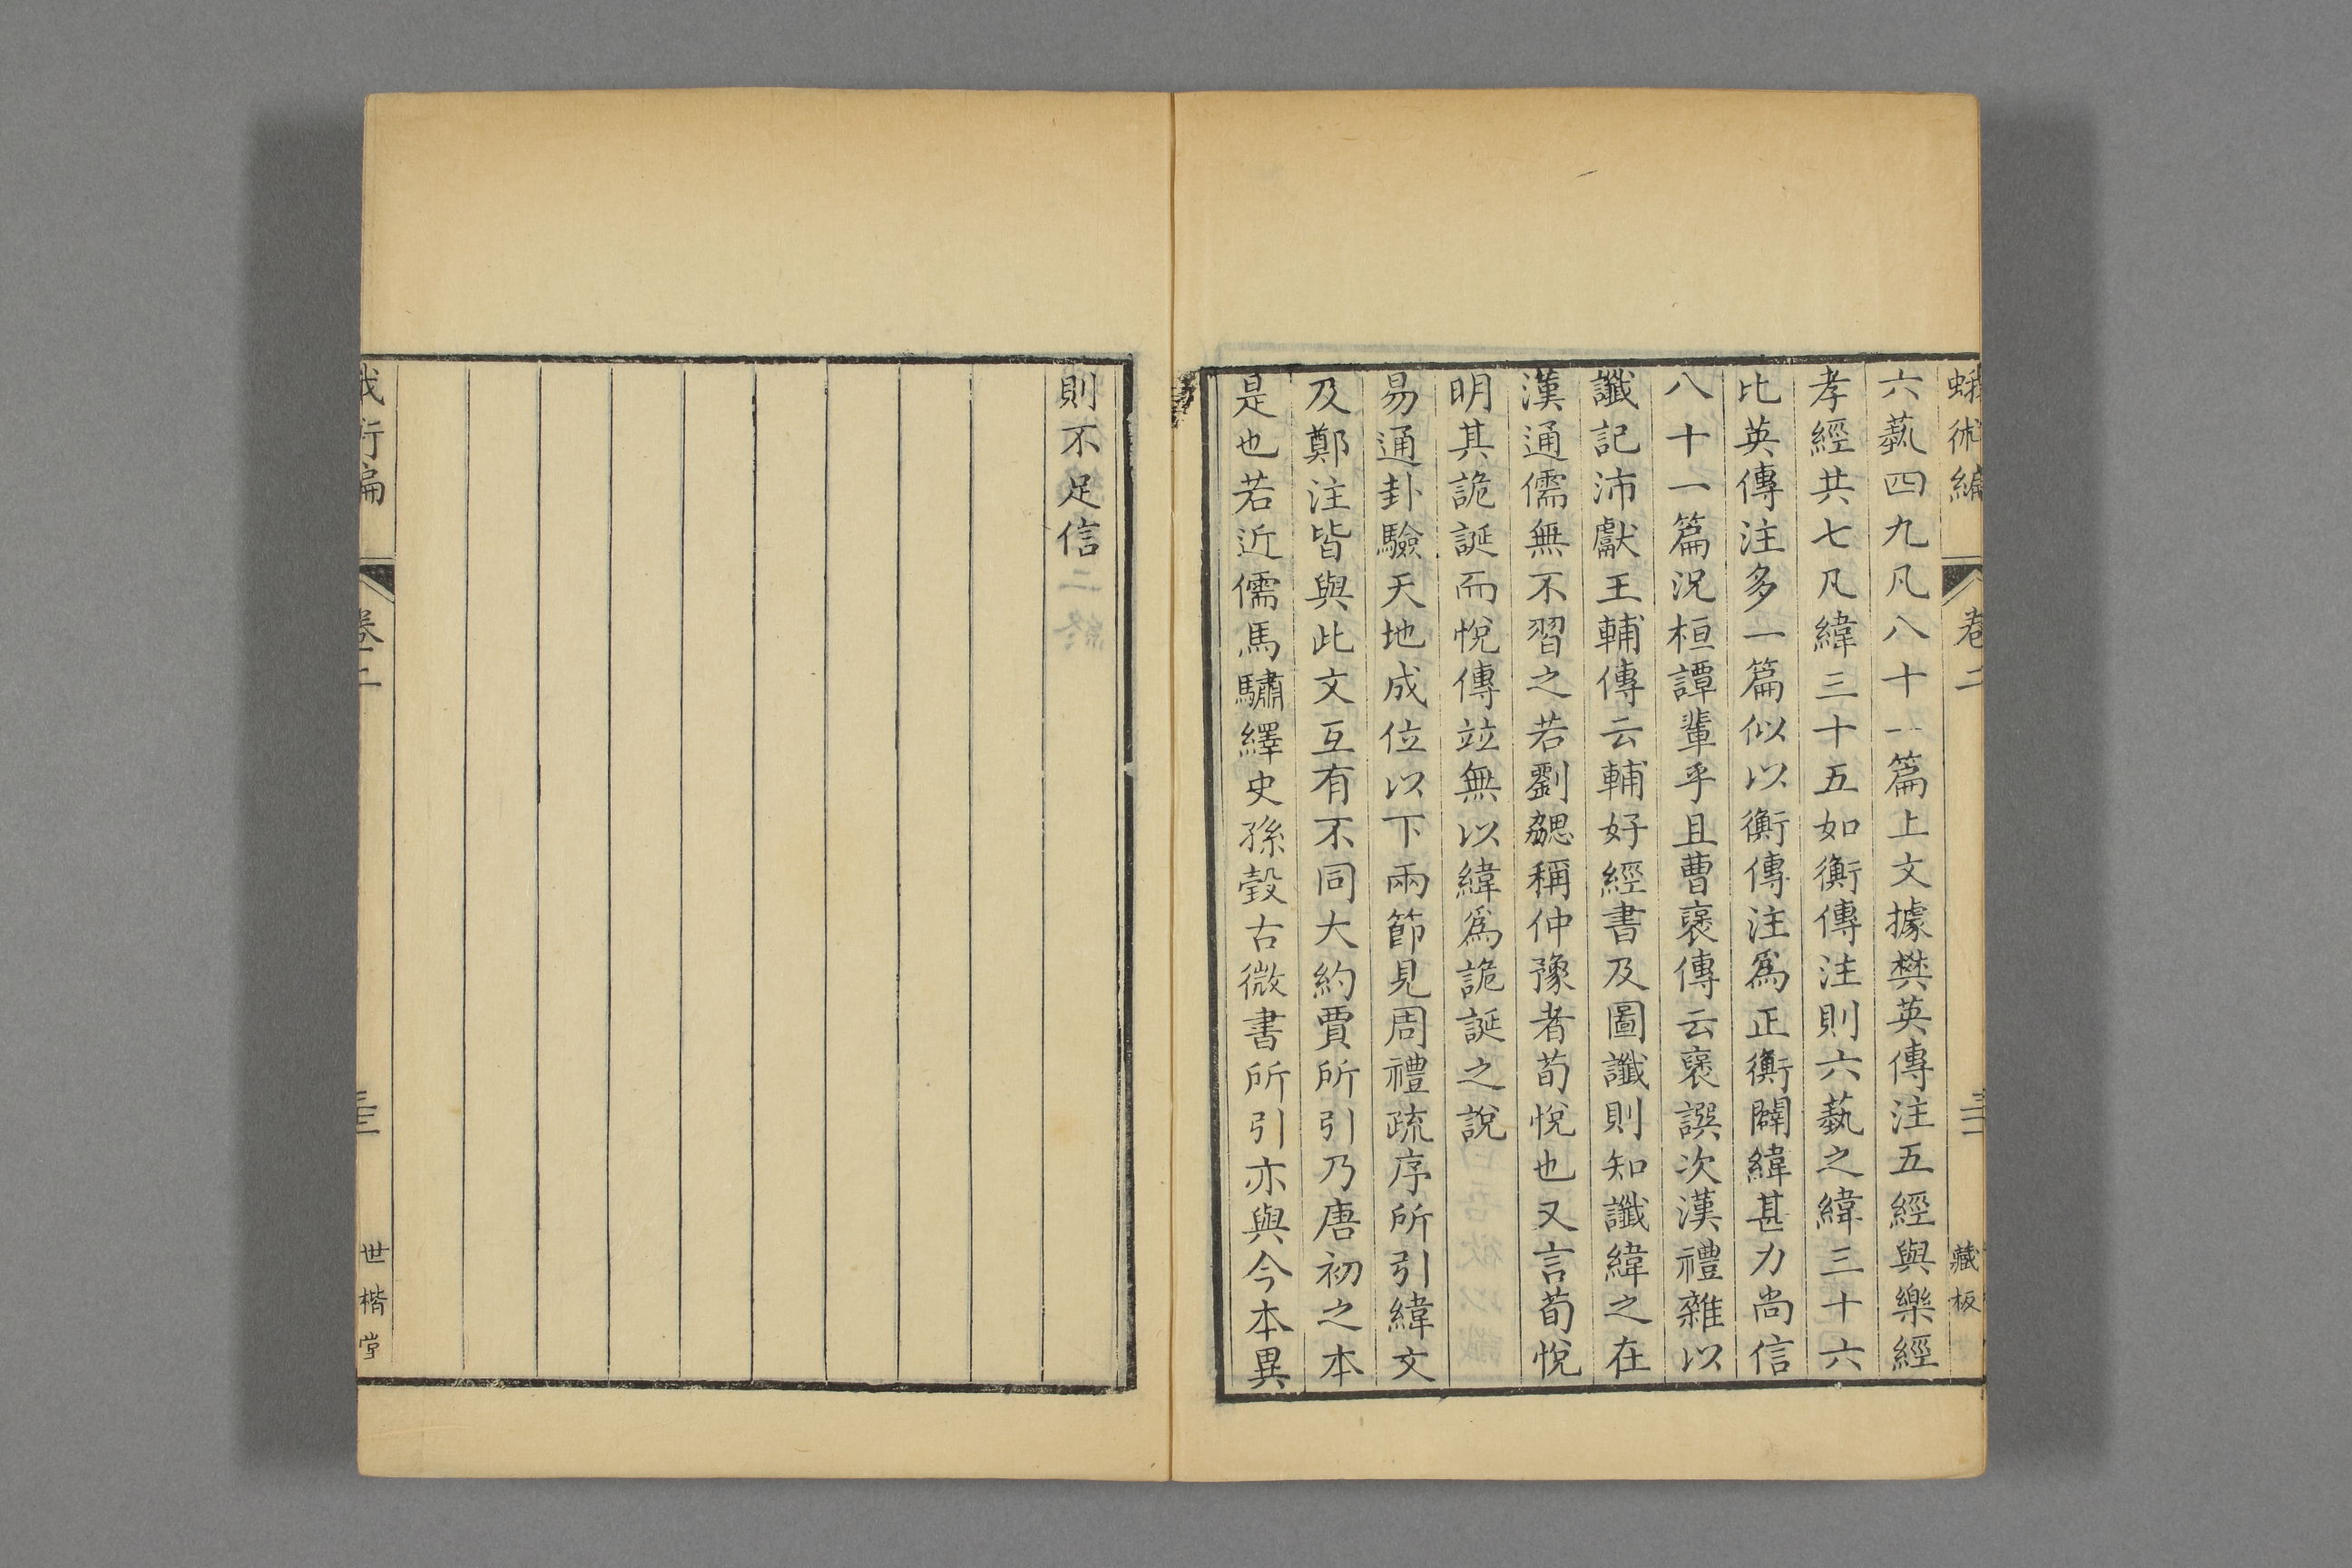 蛾術編 卷二 三二 藏板
六蓺四九凡八十一篇上文據樊英傳注五經與樂經
孝經共七凡緯三十五如衡傳注則六蓺之緯三十六
比英傳注多一篇似以衡傳注爲正衡闢緯甚力尚信
八十一篇況桓譚輩乎且曹褒傳云褒譔次漢禮雜以
讖記沛獻王輔傳云輔好經書及圖讖則知讖緯之在
漢通儒無不習之若劉勰稱仲豫者荀悅也又言荀悅
明其詭誕而悅傳竝無以緯爲詭誕之說
易通卦驗天地成位以下兩節見周禮疏序所引緯文
及鄭注皆與此文互有不同大約賈所引乃唐初之本
是也若近儒馬驌繹史孫瑴古微書所引亦與今本異
則不足信
蛾術編 卷二 三三 世楷堂